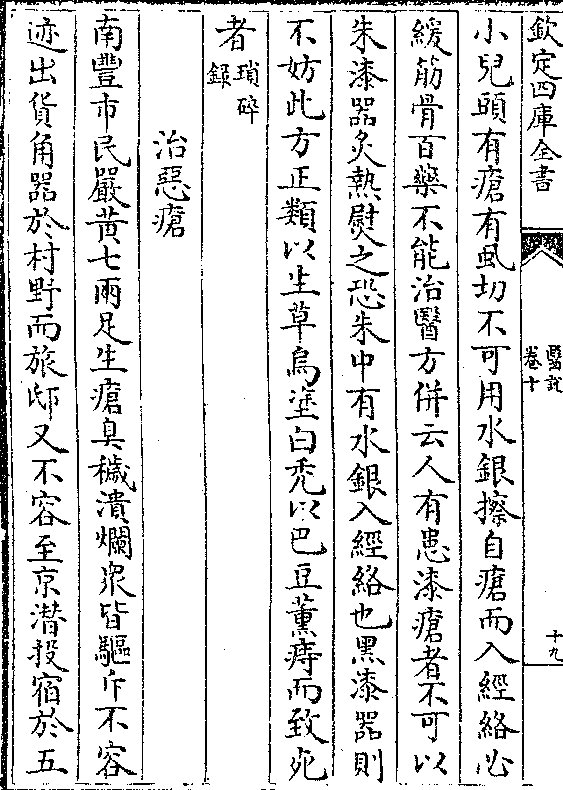 欽定四庫全書
醫說
卷十
十九
小兒頭有瘡有虱切不可用水銀擦自瘡而入經絡必
緩筋骨百藥不能治醫方併云人有患漆瘡者不可以
朱漆器炙熱熨之恐朱中有水銀入經絡也黑漆器則
不妨此方正類以生草烏塗白秃以巴豆薰痔而致死
者瑣碎
錄
治惡瘡
南豐市民嚴黄七兩足生瘡臭穢潰爛衆皆驅斥不容
迹出貨角器於村野而旅邸又不容至京潛投宿於五